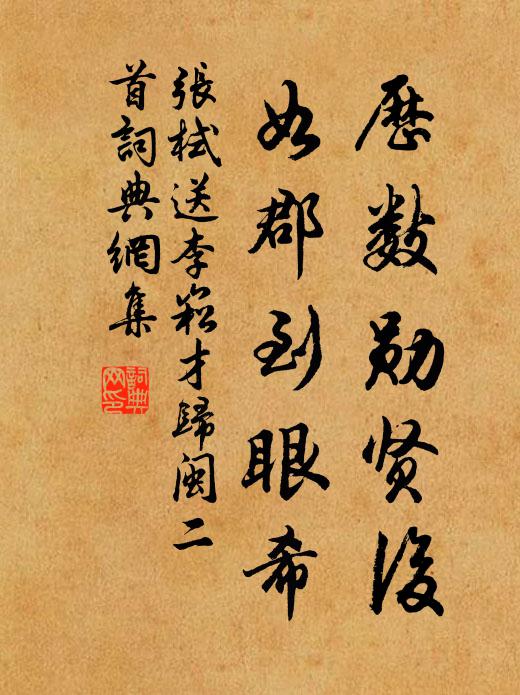 歷數勛贤後
如郡到眼希
張栻送李崧才歸閩二
首詞典網集
詞典
网印